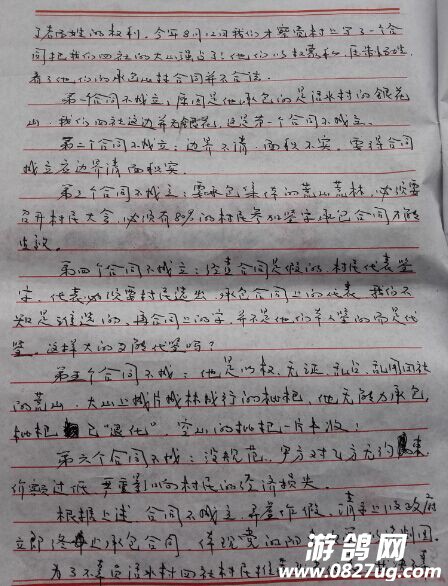 了老百姓的权利，今年8月12日我们才察觉村上写了一个合
同把我们四社的大山强占了！他们以权
看了他们的承包山村合同并不合法。
第一个合同不成立：原因是他承包的是活水村的银花
山，我们四社这边并无银花，这是第一个合同不成立。
第二个合同不成立：边界不清，面积不实。要得合同
成立应边界清面积实。
第三个合同不成立：要承包集体的荒山荒林，必须要
召开村民大会，必须有80%的村民参加签字承包合同才能
生效。
第四个合同不成立：经查合同是假的村民代表签
字，代表必须要村民选出，承包合同上的代表我们不
知是谁选的，再合同上的字，并不是他们本人签的而是代
签，这样大的事能代签吗？
第五个合同不成：他是以权、无证、乱占、乱用四社
的荒山，大山上成片成林成行的枇杷，他无能力承包，
枇杷已"退化"，空山的枇杷一片丰收！
第六个合同不成：没规范，甲方对乙方无约束，
价格过低严重影响村民的经济损失。
根据上述合同不成立，弄虚作假，请求上级政府
立即终止承包合同
为了不辜负活水村四社村民
游鸽网
www.0827ug.com